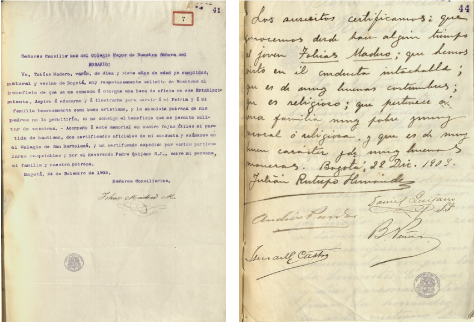 41
7
Señores Consiliarios del Colegio Mayor de Nuestra Señora del
ROSARIO:
Yo, Tobías Madero, varón, de diez y siete años de edad ya cumplidos,
natural y vecino de Bogotá, muy respetuosamente solicito de Vosotros el
beneficio de que se me conceda ó otorgue una beca de oficio en ese Establecimiento
Aspiro á educarme é ilustrarme para servir á mi Patria y á mi
Familia
no me lo permitirán, si no consigo el beneficio que me permito solicitar
Acompaño á este memorial en cuatro fojas útiles mi partida
de bautismo, dos certificados oficiales de mi conducta y exámenes en
el Colegio de San Bartolomé, y un certificado expedido por varios particulares
respetables y por el Reverendo Padre Quijano S.J., sobre mi persona,
mi familia y nuestra pobreza.
Bogotá, de de 1903.
Señores Consiliarios,
Tobías Madero
44
Los suscritos certificamos: que
conocemos desde hace algún tiempo
al joven Tobías Madero; que hemos
visto en él conducta intachable;
que es de muy buenas costumbres;
que es religioso; que pertenece a
una familia muy pobre muy
moral é religiosa y que es de muy
buen carácter y de muy buenas
maneras. Bogotá, 22 Dic. 1903.
Julián Restrepo Hernández
Daniel Quijano
S.J.
Ismael Castro